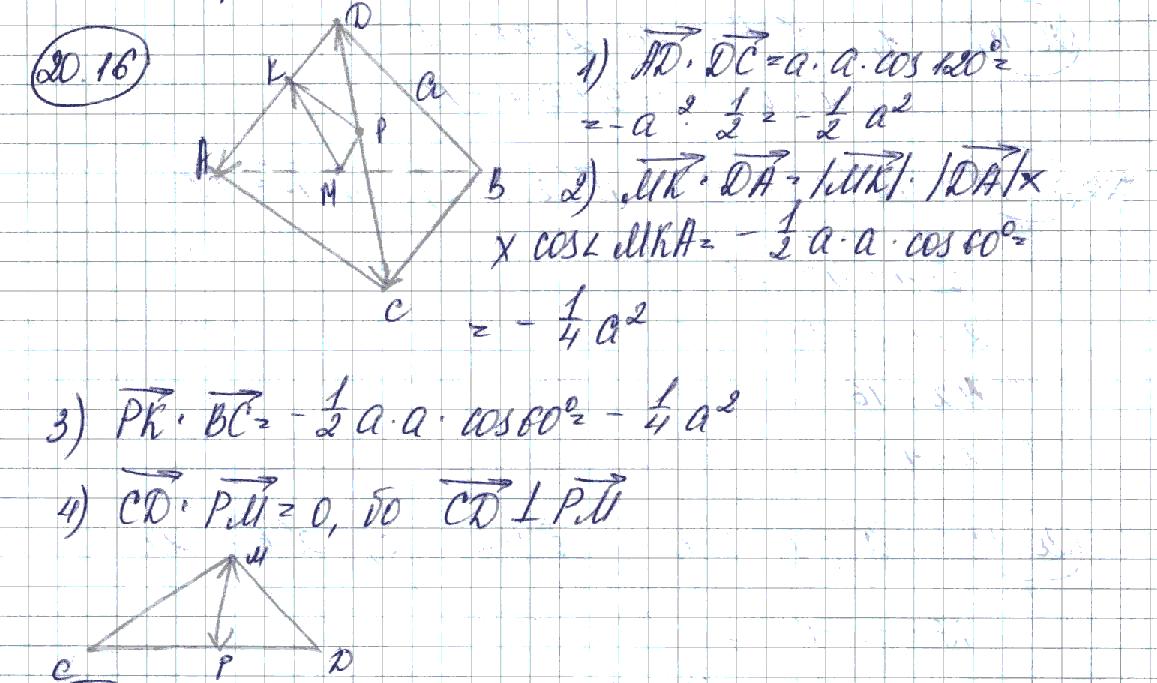 20.16
D
K
a
P
A
M
B
C
1) AD⃗ · DC⃗ = a · a · cos 120° =
= -a² · 1/2 = - 1/2 a²
2) MK⃗ · DA⃗ = |MK⃗| · |DA⃗| ×
× cos ∠ MKA = - 1/2 a · a · cos 60° =
= - 1/4 a²
3) PK⃗ · BC⃗ = - 1/2 a · a · cos 60° = - 1/4 a²
4) CD⃗ · PM⃗ = 0, бо CD⃗ ⊥ PM⃗
M
C P D